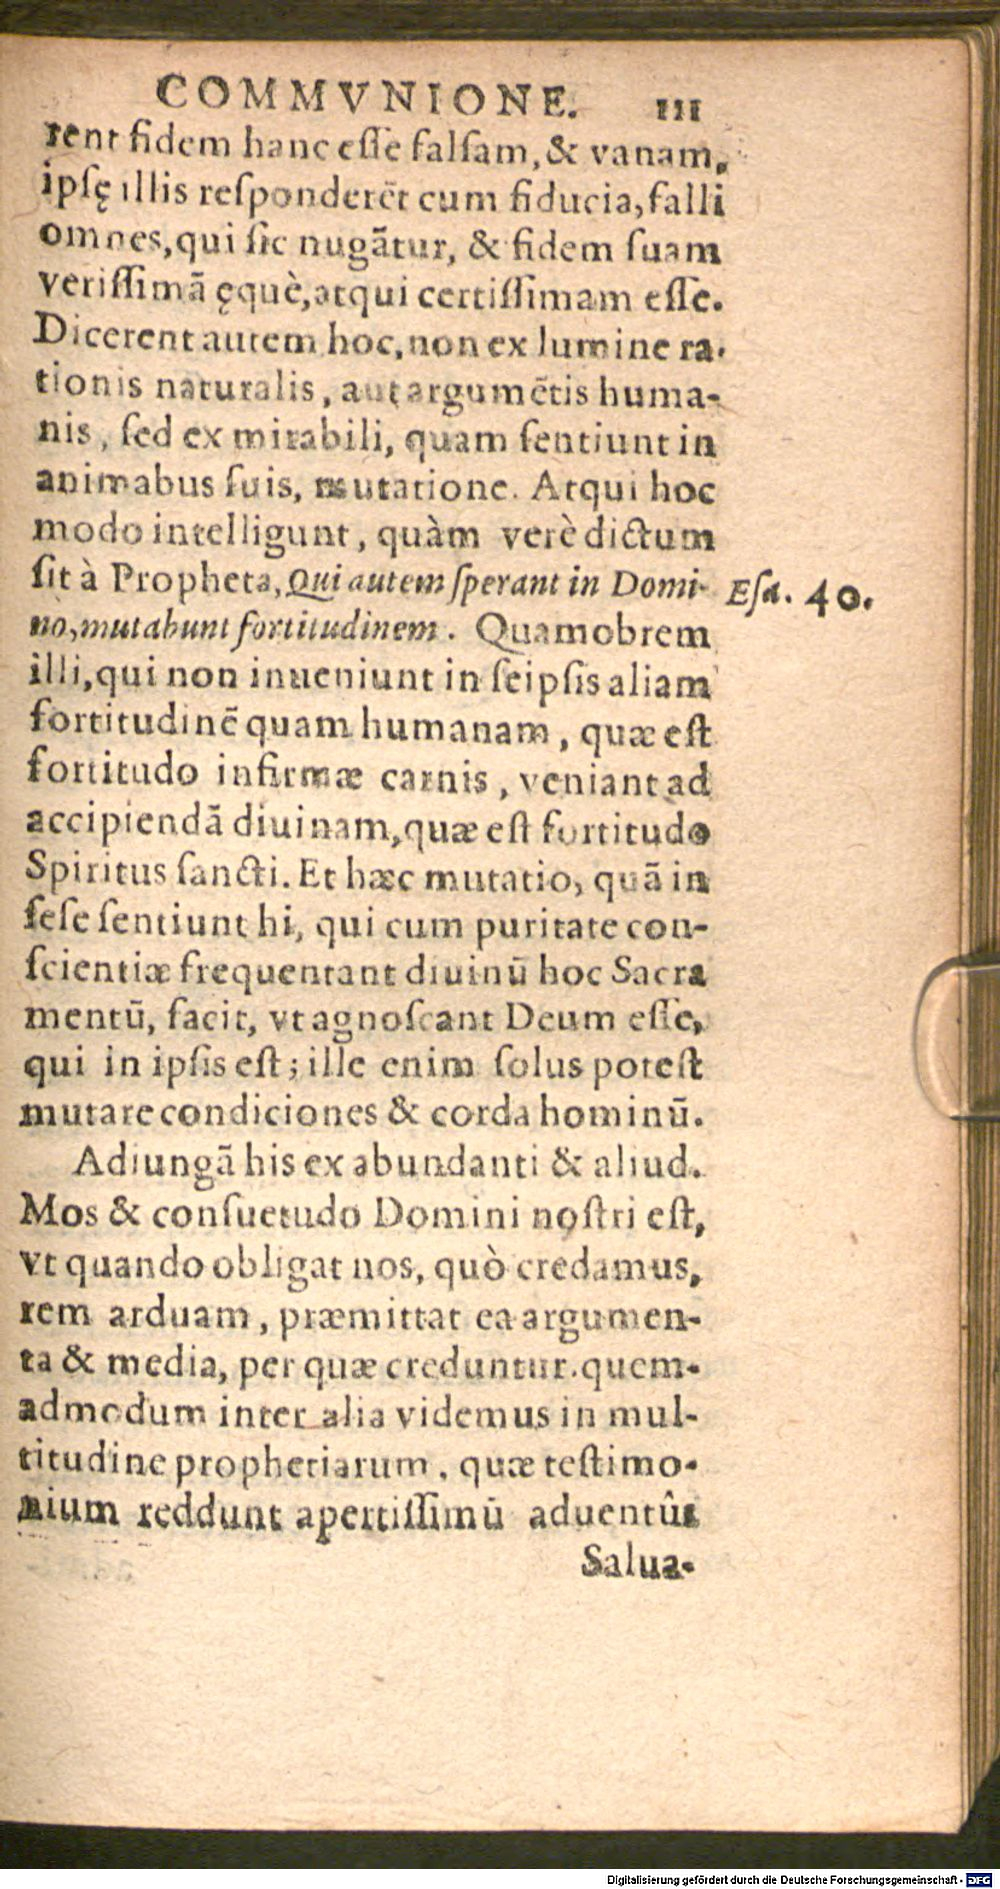 COMMVNIONE. 111
rent fidem hanc eſſe falſam, & vanam,
ipſę illis reſponderēt cum fiducia, falli
omnes, qui ſic nugātur, & fidem ſuam
veriſſimā ęquè, atqui certiſſimam eſſe.
Dicerent autem hoc, non ex lumine ra-
tionis naturalis, aut argumētis huma-
nis, ſed ex mirabili, quam ſentiunt in
animabus ſuis, mutatione. Atqui hoc
modo intelligunt, quàm verè dictum
ſit à Propheta, Qui autem ſperant in Domi- Eſa. 40.
no, mutabunt fortitudinem. Quamobrem
illi, qui non inueniunt in ſeipſis aliam
fortitudinē quam humanam, quæ eſt
fortitudo infirmæ carnis, veniant ad
accipiendā diuinam, quæ eſt fortitudo
Spiritus ſancti. Et hæc mutatio, quā in
ſeſe ſentiunt hi, qui cum puritate con-
ſcientiæ frequentant diuinū hoc Sacra
mentū, facit, vt agnoſcant Deum eſſe,
qui in ipſis eſt; ille enim ſolus poteſt
mutare condiciones & corda hominū.
Adiungā his ex abundanti & aliud.
Mos & conſuetudo Domini noſtri eſt,
vt quando obligat nos, quò credamus,
rem arduam, præmittat ea argumen-
ta & media, per quæ creduntur. quem-
admodum inter alia videmus in mul-
titudine prophetiarum, quæ teſtimo-
nium reddunt apertiſſimū aduentûs
Salua-
Digitalisierung gefördert durch die Deutsche Forschungsgemeinschaft - DFG